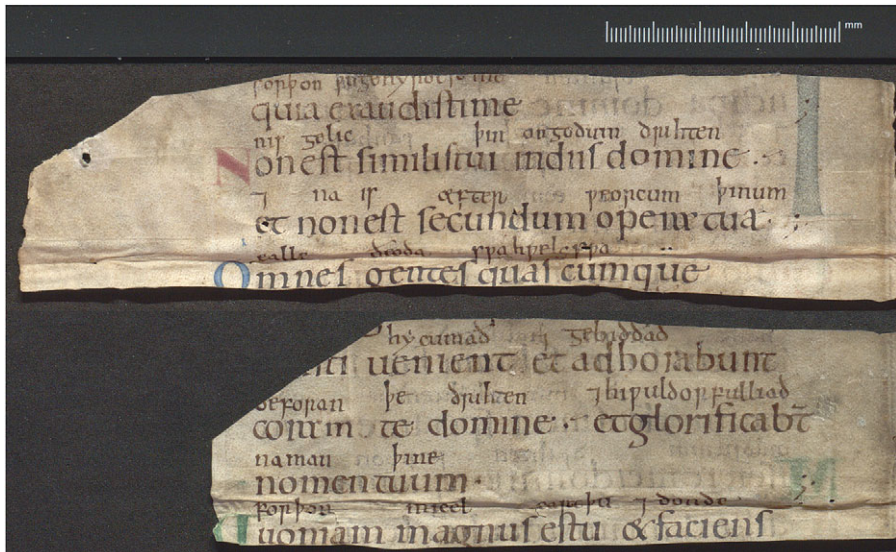 mm
forþon
quia exaudisti me
nis gelic þin on godum drihten
Non est similis tui in diis domine
⁊ na is æfter weorcum þinum
et non est secundum opera tua
ealle ðioda swa hwelce swa
Omnes gentes quascumque
hy cumað gebiddað
uenient et adhorabunt
beforan þe drihten ⁊ hi wuldorfulliað
coram te domine · et glorificabt̄
naman þine
nomen tuum ·
forþon micel ⁊ donde
uoniam magnus es tu & faciens